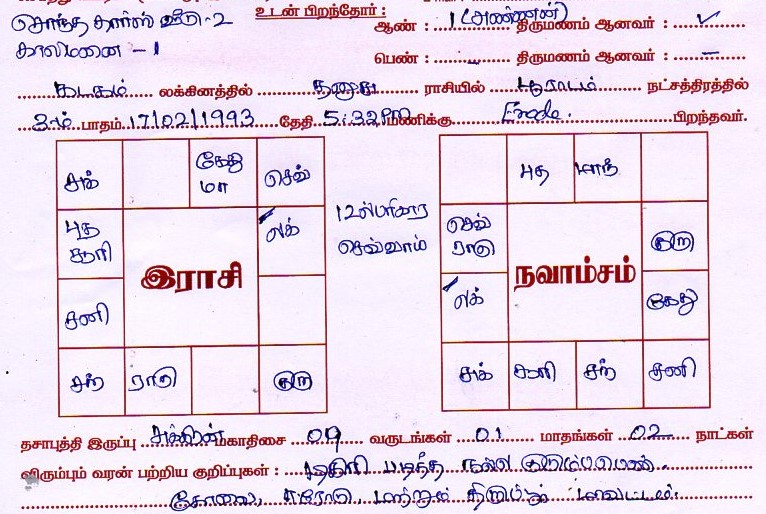 சொந்த கார்ஸ் வீடு-2
காலிமனை - 1
உடன் பிறந்தோர் :
ஆண் : 1 (அண்ணன்) திருமணம் ஆனவர் : ✓
பெண் : - திருமணம் ஆனவர் : -
கடகம் லக்கினத்தில் தனுசு ராசியில் பூராடம் நட்சத்திரத்தில்
3ம் பாதம் 17/02/1993 தேதி 5:32PM மணிக்கு Erode. பிறந்தவர்.
சுக் கேது மா செவ்
புத சூரி லக்
சனி
சந் ராகு குரு
இராசி
12ல் பரிகார செவ்வாய்
புத மாந்
செவ் ராகு குரு
லக் கேது
சுக் சூரி சந் சனி
நவாம்சம்
தசாபுத்தி இருப்பு சுக்கிரன் மகாதிசை 09 வருடங்கள் 01 மாதங்கள் 02 நாட்கள்
விரும்பும் வரன் பற்றிய குறிப்புகள் : டிகிரி படித்த நல்ல குடும்பமென்.
கோவை, ஈரோடு, மற்றும் திருப்பூர் மாவட்டம்.